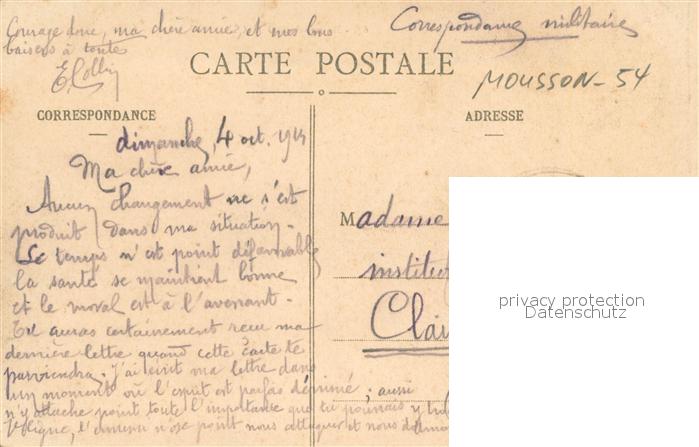 Courage donc, ma chère amie, et mes bons
baisers à toutes
E. Collin
Correspondance militaire
CARTE POSTALE
MOUSSON - 54
CORRESPONDANCE
ADRESSE
dimanche, 4 oct. 1914
Ma chère amie,
Aucun changement ne s'est
produit dans ma situation.
Le temps n'est point défavorable
la santé se maintient bonne
et le moral est à l'avenant.
Tu auras certainement reçu ma
dernière lettre quand cette carte te
parviendra. J'ai écrit ma lettre dans
un moment où l'esprit est parfois déprimé; aussi
n'y attache point toute l'importance que tu pourrais y
l'ennemi n'ose point nous attaquer et nous
Madame
institut
Clai
privacy protection
Datenschutz